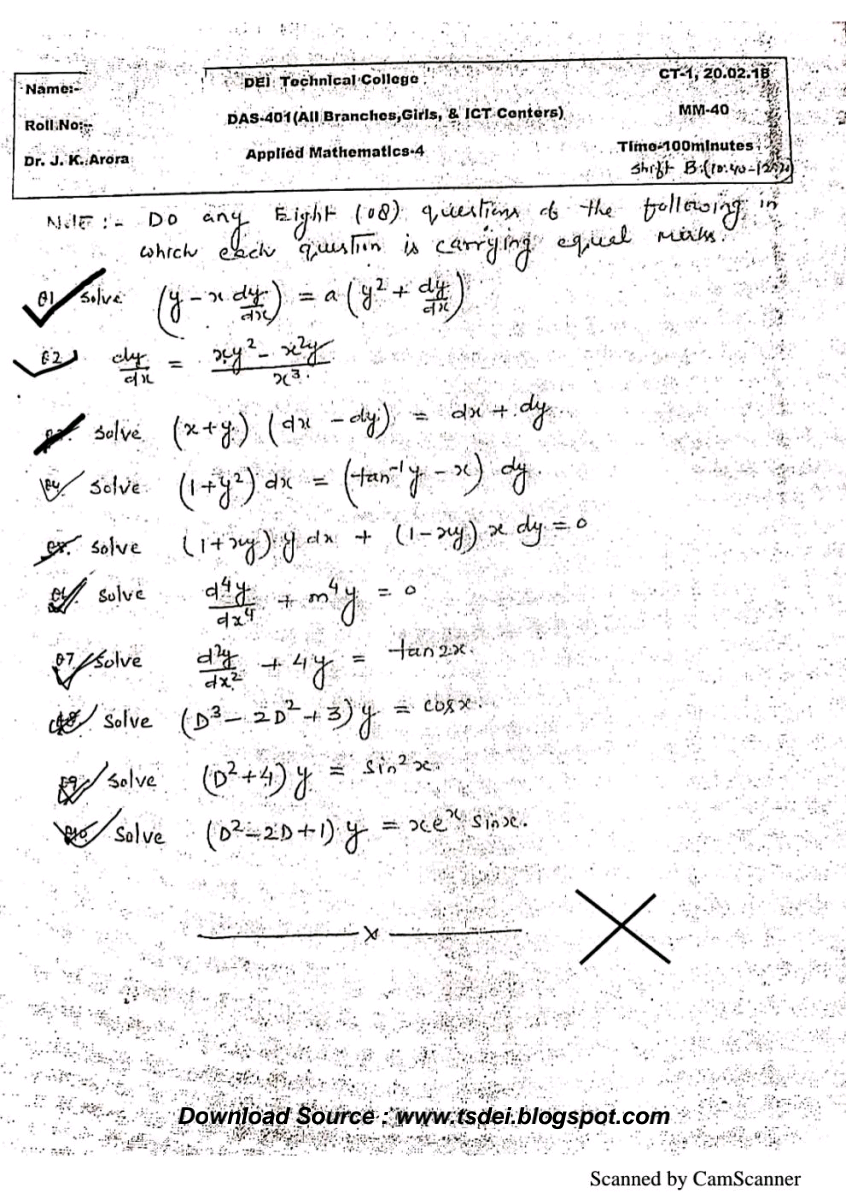 Name:- DEI Technical College CT-1, 20.02.18
Roll.No:- DAS-401(All Branches,Girls, & ICT Centers) MM-40
Dr. J. K. Arora Applied Mathematics-4 Time-100minutes
Shift B (10:40-12:20)
NOTE :- Do any Eight (08) questions of the following in
which each question is carrying equal marks.
Q1 solve (y - x dy/dx) = a (y² + dy/dx)
Q2 dy/dx = (xy² - x²y)/x³.
Q3. solve (x+y) (dx - dy) = dx + dy
Q4 solve (1+y²) dx = (tan⁻¹y - x) dy.
Q5. solve (1+xy) y dx + (1-xy) x dy = 0
Q6 solve d⁴y/dx⁴ + m⁴y = 0
Q7 solve d²y/dx² + 4y = tan2x.
Q8 solve (D³ - 2D² + 3) y = cosx.
Q9 solve (D²+4) y = sin²x.
Q10 solve (D²-2D+1) y = xeˣ sinx.
x
Download Source : www.tsdei.blogspot.com
Scanned by CamScanner